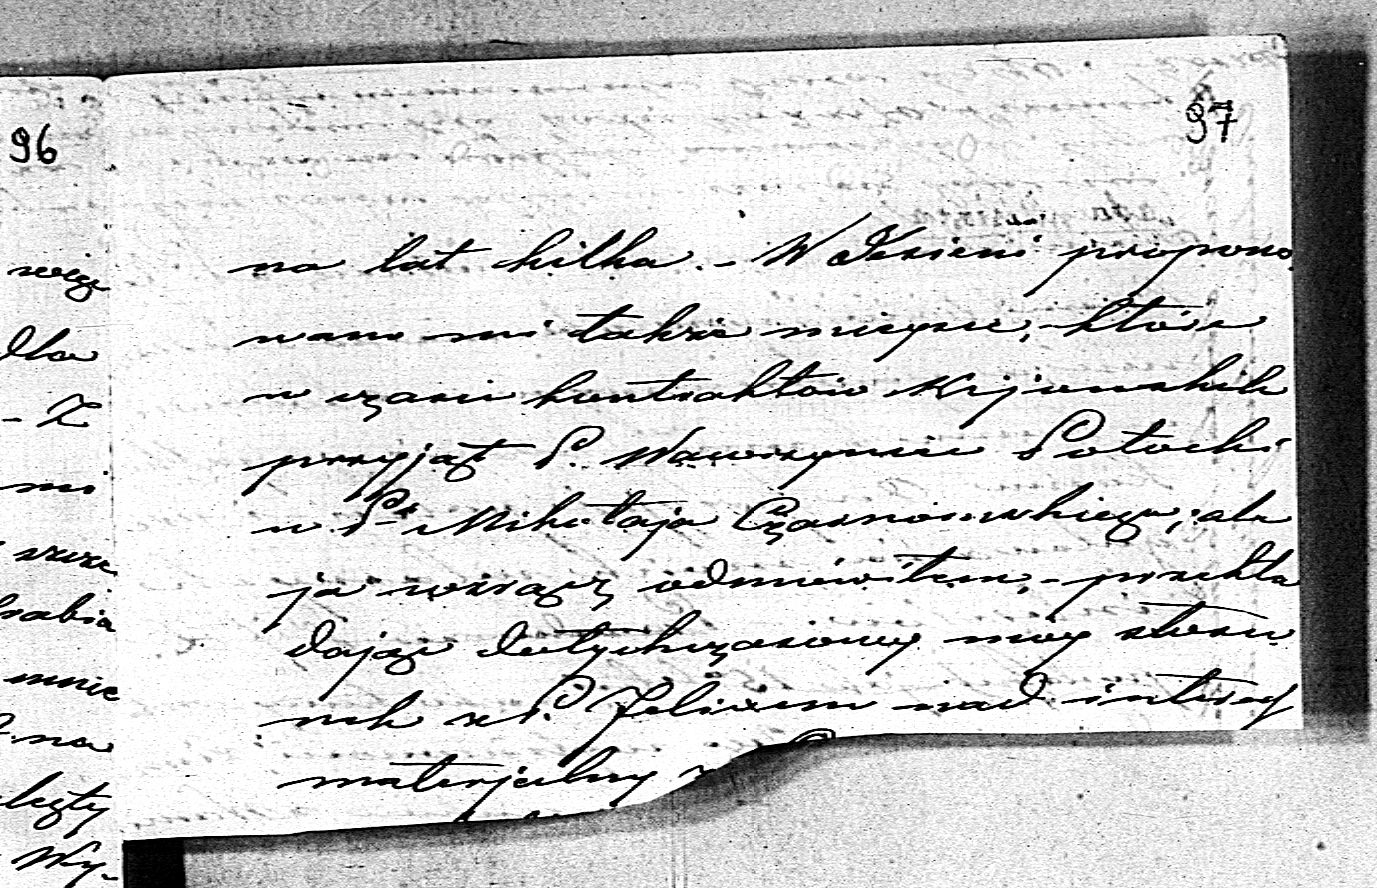 96
więc
dla
- Z
mi
mnie
na
Wy-
97
na lat kilka. - W Jesieni propono
wano mi także miejsce, które
w czasie kontraktów Kijowskich
przyjął P. Wawrzyniec Potocki
u Pa Mikołaja Czarnowskiego; ale
ja wręcz odmówiłem, - przekła
dając dotychczasowy mój stosu
nek z P. Felixem nad interes
materjalny